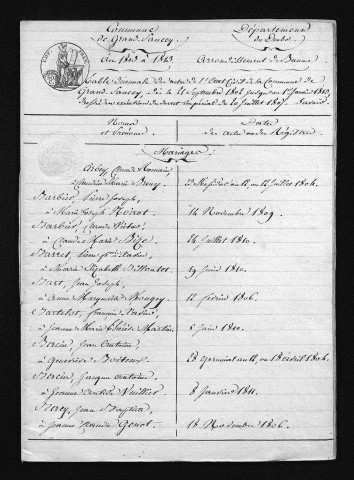 Commune
de Grand Sancey.
Département
du Doubs.
An 1803 à 1813.
Arrondissement de Baume
Table décennale des actes de l'Etat Civil de la Commune de
Grand Sancey, du 21 Septembre 1802 jusqu'au 1er Janvier 1813,
en exécution du décret impérial du 20 Juillet 1807. Savoir
Noms
et Prénoms
Dates
des actes ou des Registres
Mariages
Claude Romain
à Marie 23 Messidor an 12, ou 12 Juillet 1804.
Barbier, Pierre Joseph,
à Marie Joseph Noirot 14 Novembre 1809.
Barbier, Claude Victor
à Claude Marie 24 Juillet 1810.
Barret, Xavier
à Marie Elizabeth 19 Juin 1810.
Bart, Jean Joseph,
à Anne Marguerite Vougey 12 février 1806.
Bartelet, françois Xavier
à Jeanne Marie Thérèse Martin 5 Juin 1810.
Bercin, Jean Antoine,
à Geneviève 28 Germinal an 12, ou 18 avril 1804.
Bercin, Jacque antoine,
à Jeanne Vuillier 8 Janvier 1811.
Bercy, Jean Baptiste,
à Jeanne Claude Genot 18 Novembre 1806.